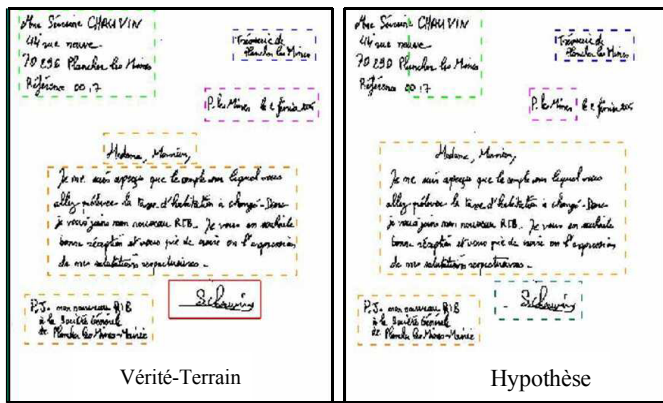 Mme Séverine CHAUVIN
44 rue neuve
70 290 Plancher les Mines
Référence 00:7
Trésorerie de
Plancher les Mines
P. les Mines le 2 février
Madame, Monsieur,
Je me suis aperçue que le compte sur lequel vous
allez prélever la taxe d'habitation a changé. Donc
je vous joins mon nouveau RIB. Je vous en souhaite
bonne réception et vous prie de croire en l'expression
de mes salutations respectueuses.
SChauvin
P.J. mon nouveau RIB
à la Société Générale
de Plancher les Mines-Mairie
Vérité-Terrain
Mme Séverine CHAUVIN
44 rue neuve
70 290 Plancher les Mines
Référence 00:7
Trésorerie de
Plancher les Mines
P. les Mines le 2 février
Madame, Monsieur,
Je me suis aperçue que le compte sur lequel vous
allez prélever la taxe d'habitation a changé. Donc
je vous joins mon nouveau RIB. Je vous en souhaite
bonne réception et vous prie de croire en l'expression
de mes salutations respectueuses.
SChauvin
P.J. mon nouveau RIB
à la Société Générale
de Plancher les Mines-Mairie
Hypothèse